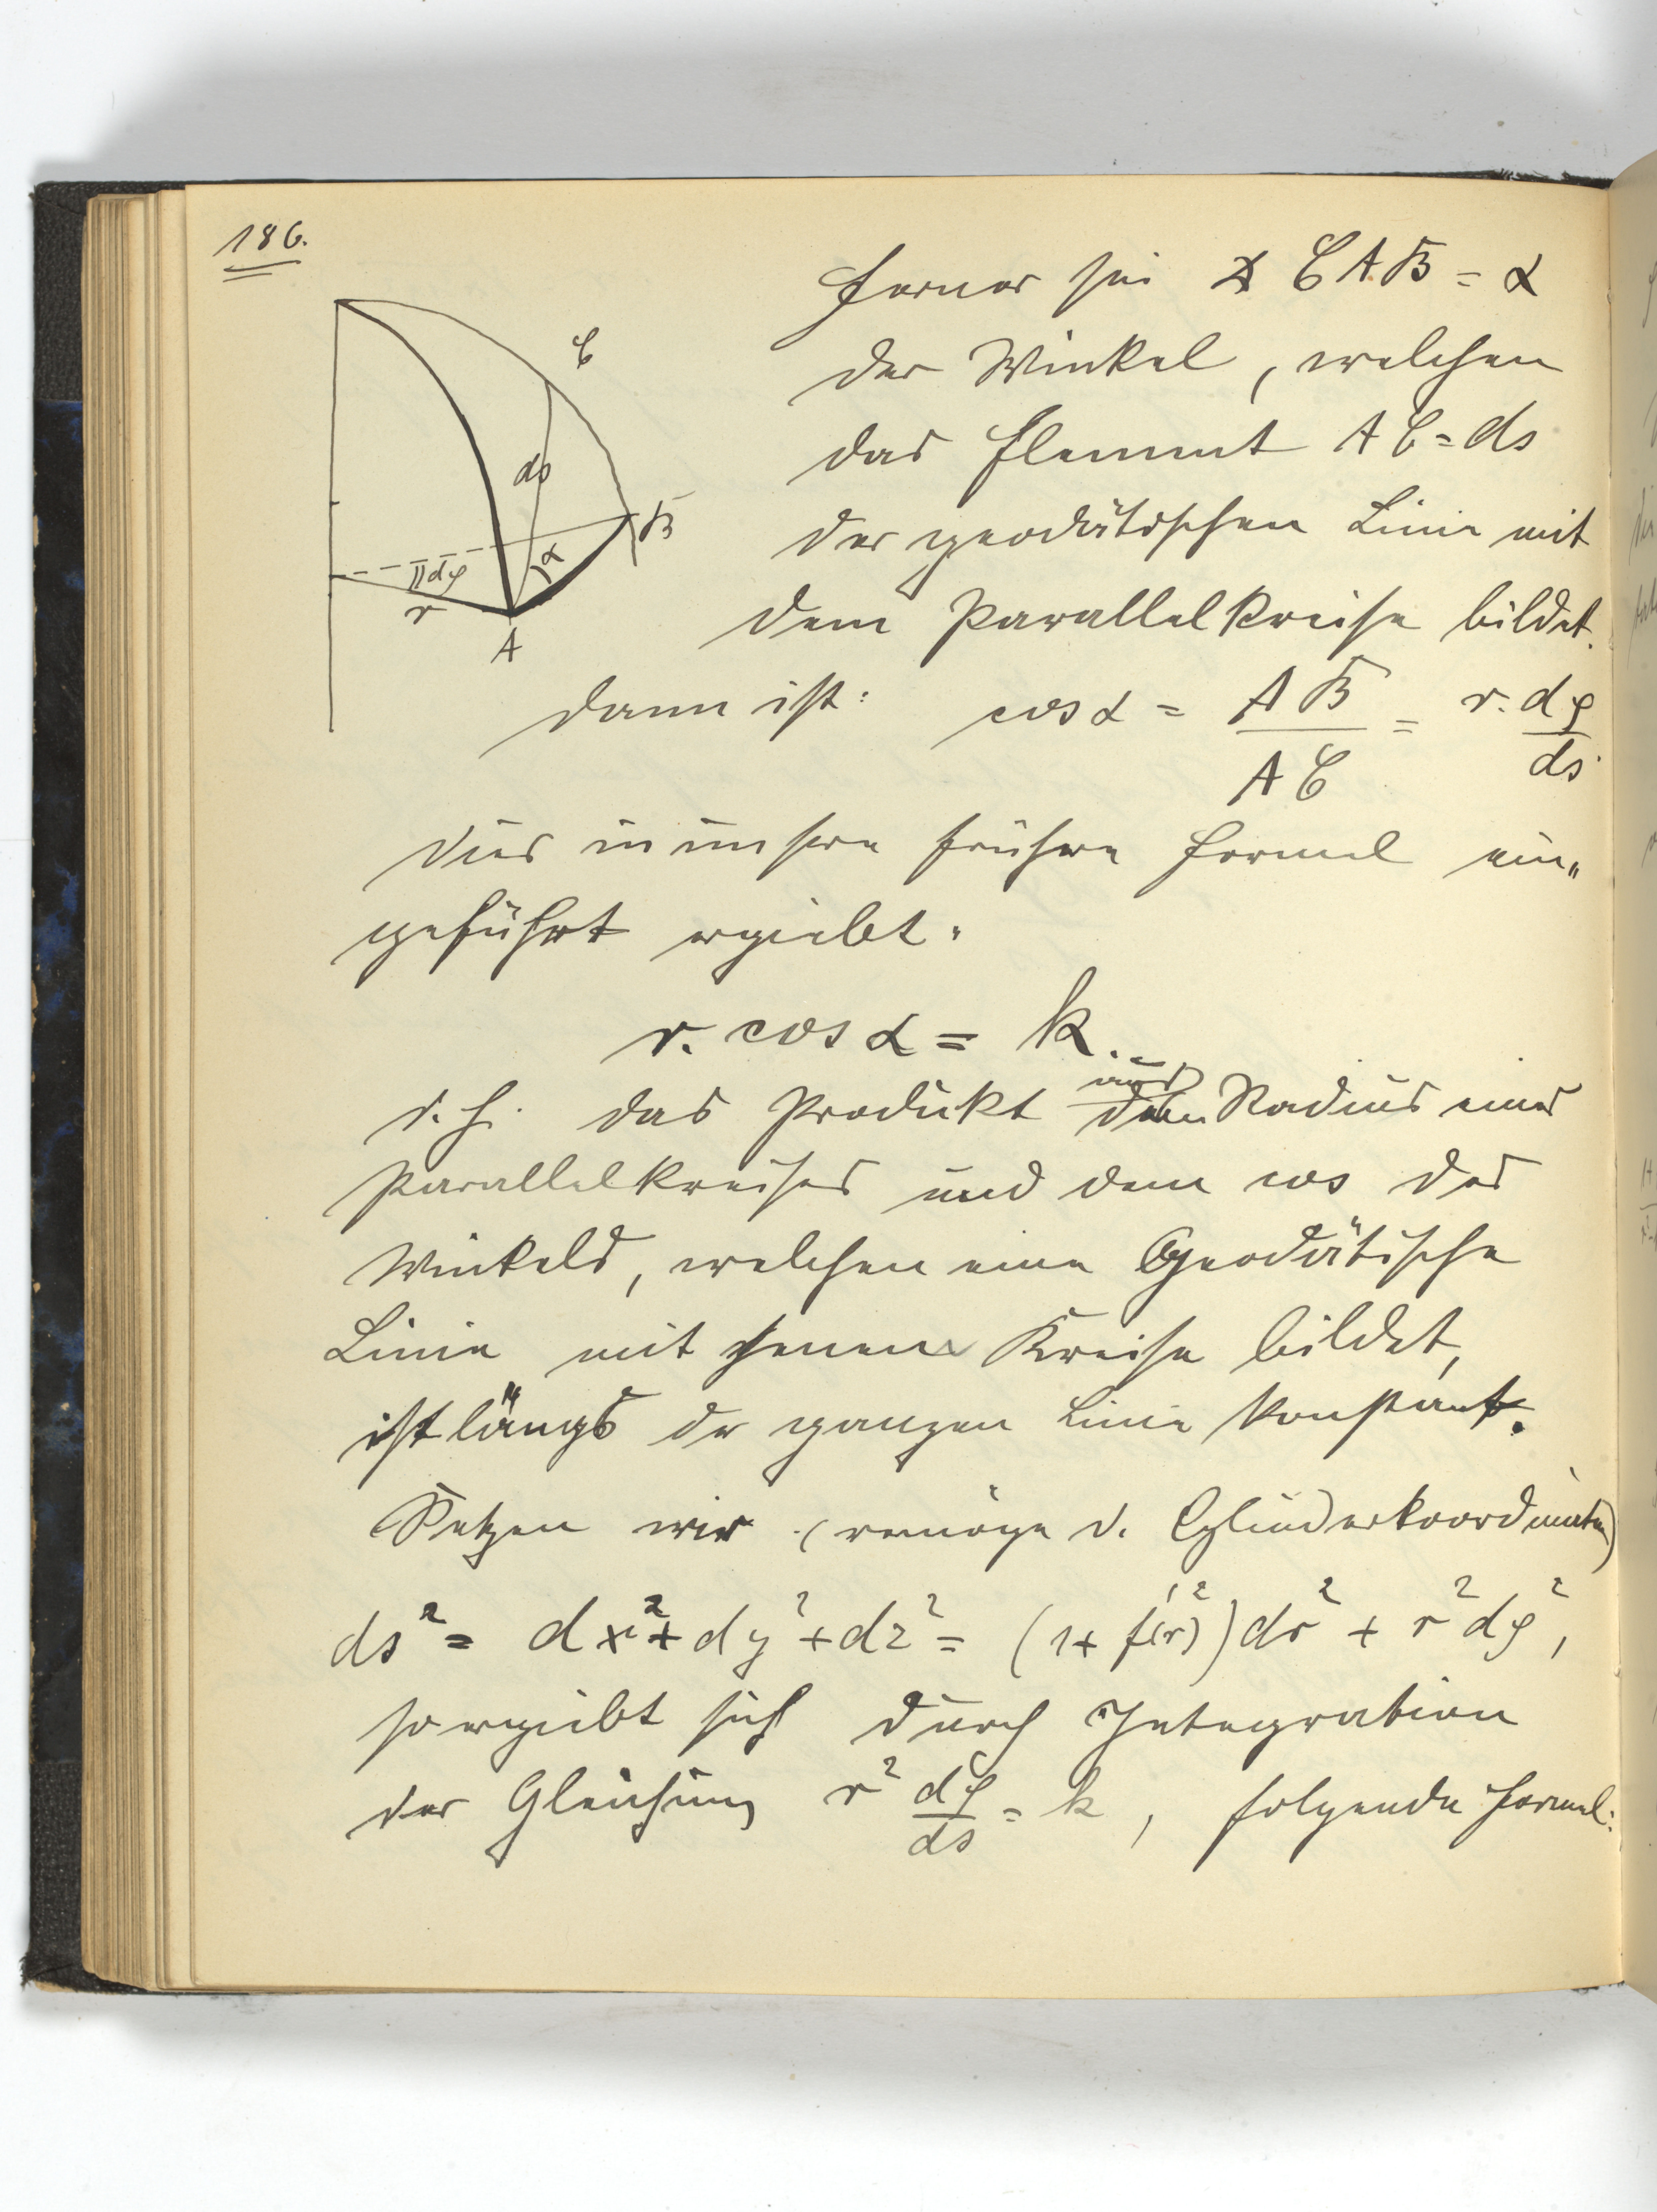 186.
Ferner sei ∢ CAB = α
der Winkel, welchen
das Element AC = ds
der geodätischen Linie mit
dem Parallelkreise bildet.
C
ds
B
α
dφ
r
A
Dann ist: cos α = AB / AC = r. dφ / ds.
Dies in unsere frühere Formel ein„
geführt ergiebt:
r. cos α = k.
d. h. das Produkt aus dem Radius eines
Parallelkreises und dem cos des
Winkels, welchen eine Geodätische
Linie mit jenem Kreise bildet,
ist längs der ganzen Linie konstant.
Setzen wir (vermöge d. Cylinderkoordinaten)
ds² = dx² + dy² + dz² = (1 + f'(r)²) dr² + r² dφ²,
so ergiebt sich durch Integration
der Gleichung r² dφ/ds = k, folgende Formel: